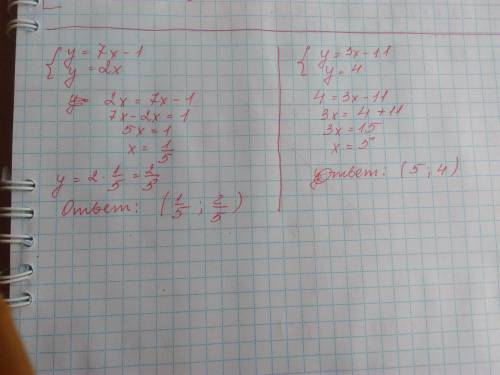 { y = 7x - 1
y = 2x
2x = 7x - 1
7x - 2x = 1
5x = 1
x = 1/5
y = 2 · 1/5 = 2/5
Ответ: (1/5 ; 2/5)
{ y = 3x - 11
y = 4
4 = 3x - 11
3x = 4 + 11
3x = 15
x = 5
Ответ: (5 ; 4)